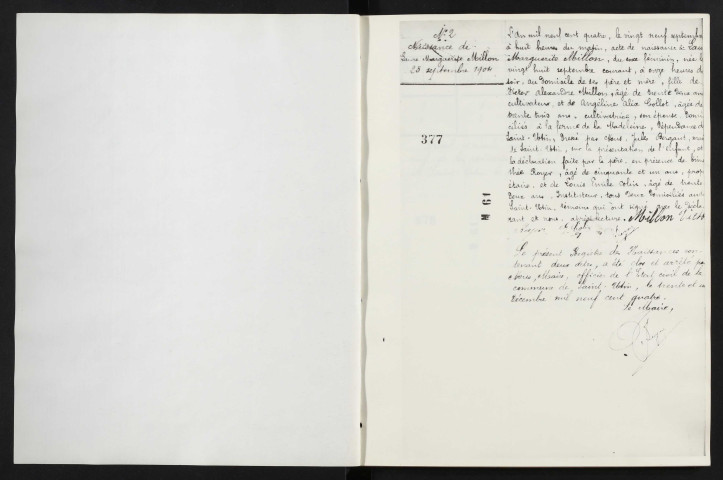 N° 2
Naissance de
Laure Marguerite Millon
28 septembre 1904
377
L'an mil neuf cent quatre, le vingt neuf septembre
à huit heures du matin, acte de naissance de Laure
Marguerite Millon, du sexe féminin, née le
vingt huit septembre courant, à onze heures du
soir, au domicile de ses père et mère, fille de
Victor Alexandre Millon, âgé de trente deux ans
cultivateur, et de Angéline Alix Collot, âgée de
trente trois ans, cultivatrice, son épouse, domi
ciliés à la ferme de la Madeleine, dépendance de
Saint-, Dressé par Nous, Jules, maire
de Saint, sur la présentation de l'enfant, et
la déclaration faite par le père, en présence de
Royer, âgé de cinquante et un ans, propri
étaire, et de Louis Emile Colin, âgé de trente
deux ans, Instituteur, tous deux domiciliés audit
Saint-, témoins qui ont signé avec le décla
rant et nous, après lecture. Millon
N° 61
Le présent Registre des Naissances con
tenant deux actes, a été clos et arrêté par
Nous, Maire, officier de l'Etat civil de la
commune de Saint-, le trente et un
décembre mil neuf cent quatre.
Le Maire,